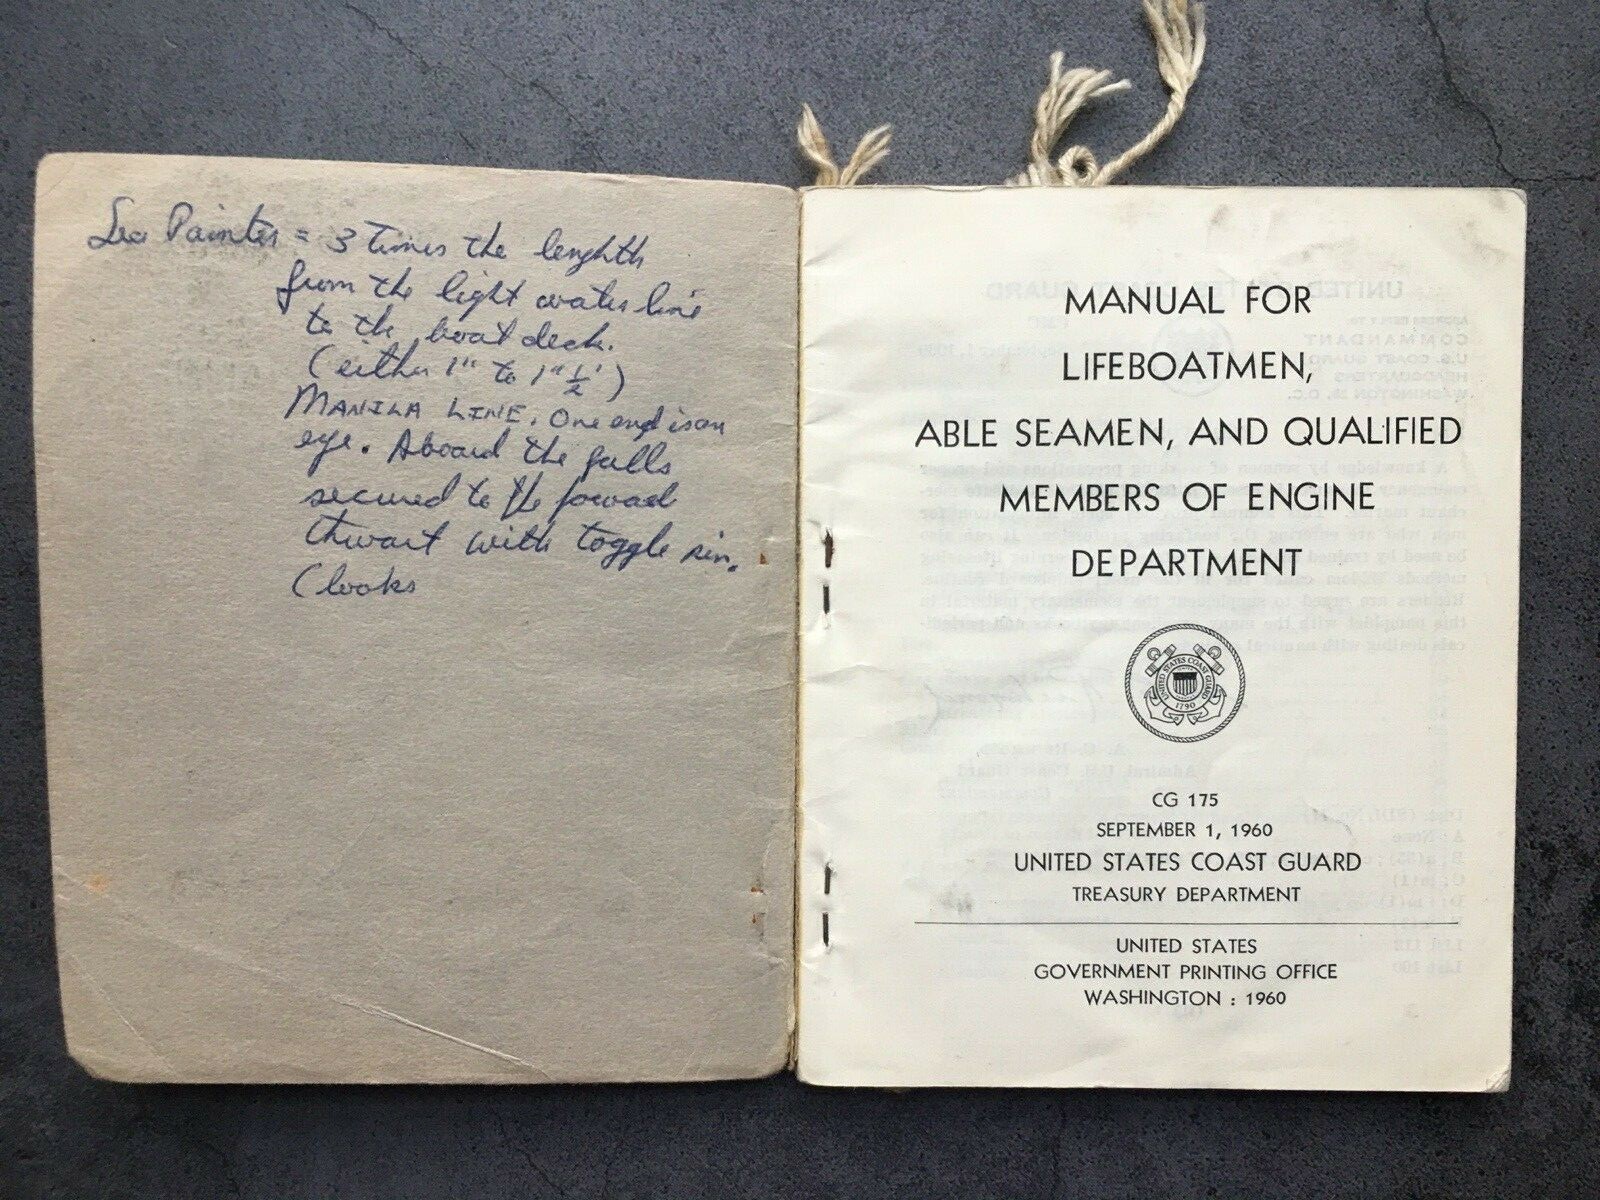 Sea Painter = 3 times the lenghth
from the light water line
to the boat deck.
(either 1" to 1" ½")
MANILA LINE. One end is an
eye. Aboard the falls
secured to the foward
thwart with toggle pin.
(looks
MANUAL FOR
LIFEBOATMEN,
ABLE SEAMEN, AND QUALIFIED
MEMBERS OF ENGINE
DEPARTMENT
UNITED STATES COAST GUARD
1790
CG 175
SEPTEMBER 1, 1960
UNITED STATES COAST GUARD
TREASURY DEPARTMENT
UNITED STATES
GOVERNMENT PRINTING OFFICE
WASHINGTON : 1960